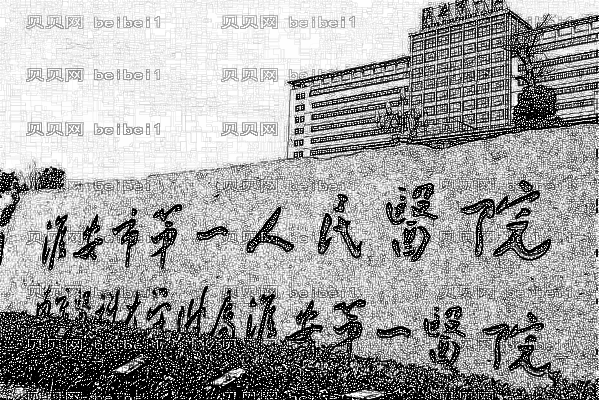 贝贝网 beibei1 贝贝网 beibei1 贝贝网 beibei1
贝贝网 beibei1 贝贝网 beibei1 贝贝网 beibei1
贝贝网 beibei1 贝贝网 beibei1 贝贝网 beibei1
淮安市第一人民醫院
南京醫科大学附属淮安第一醫院